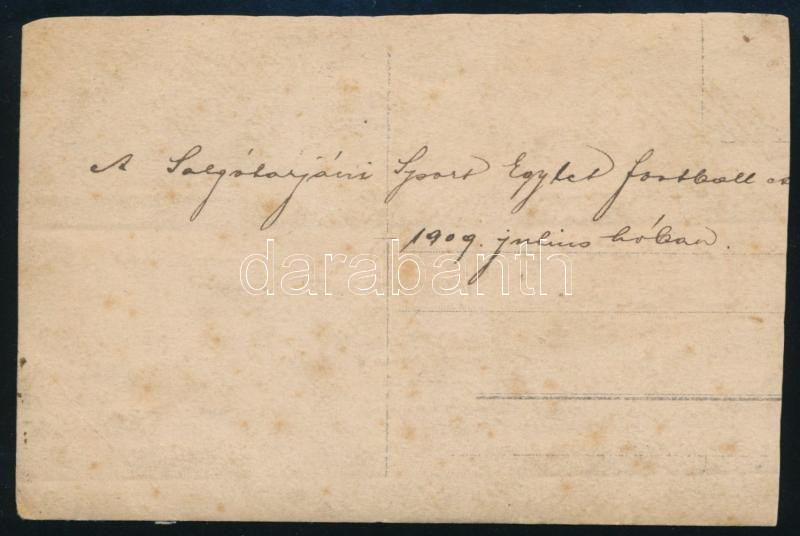 A Salgótarjáni Sport Egylet football
1909. julius hóban.
darabanth